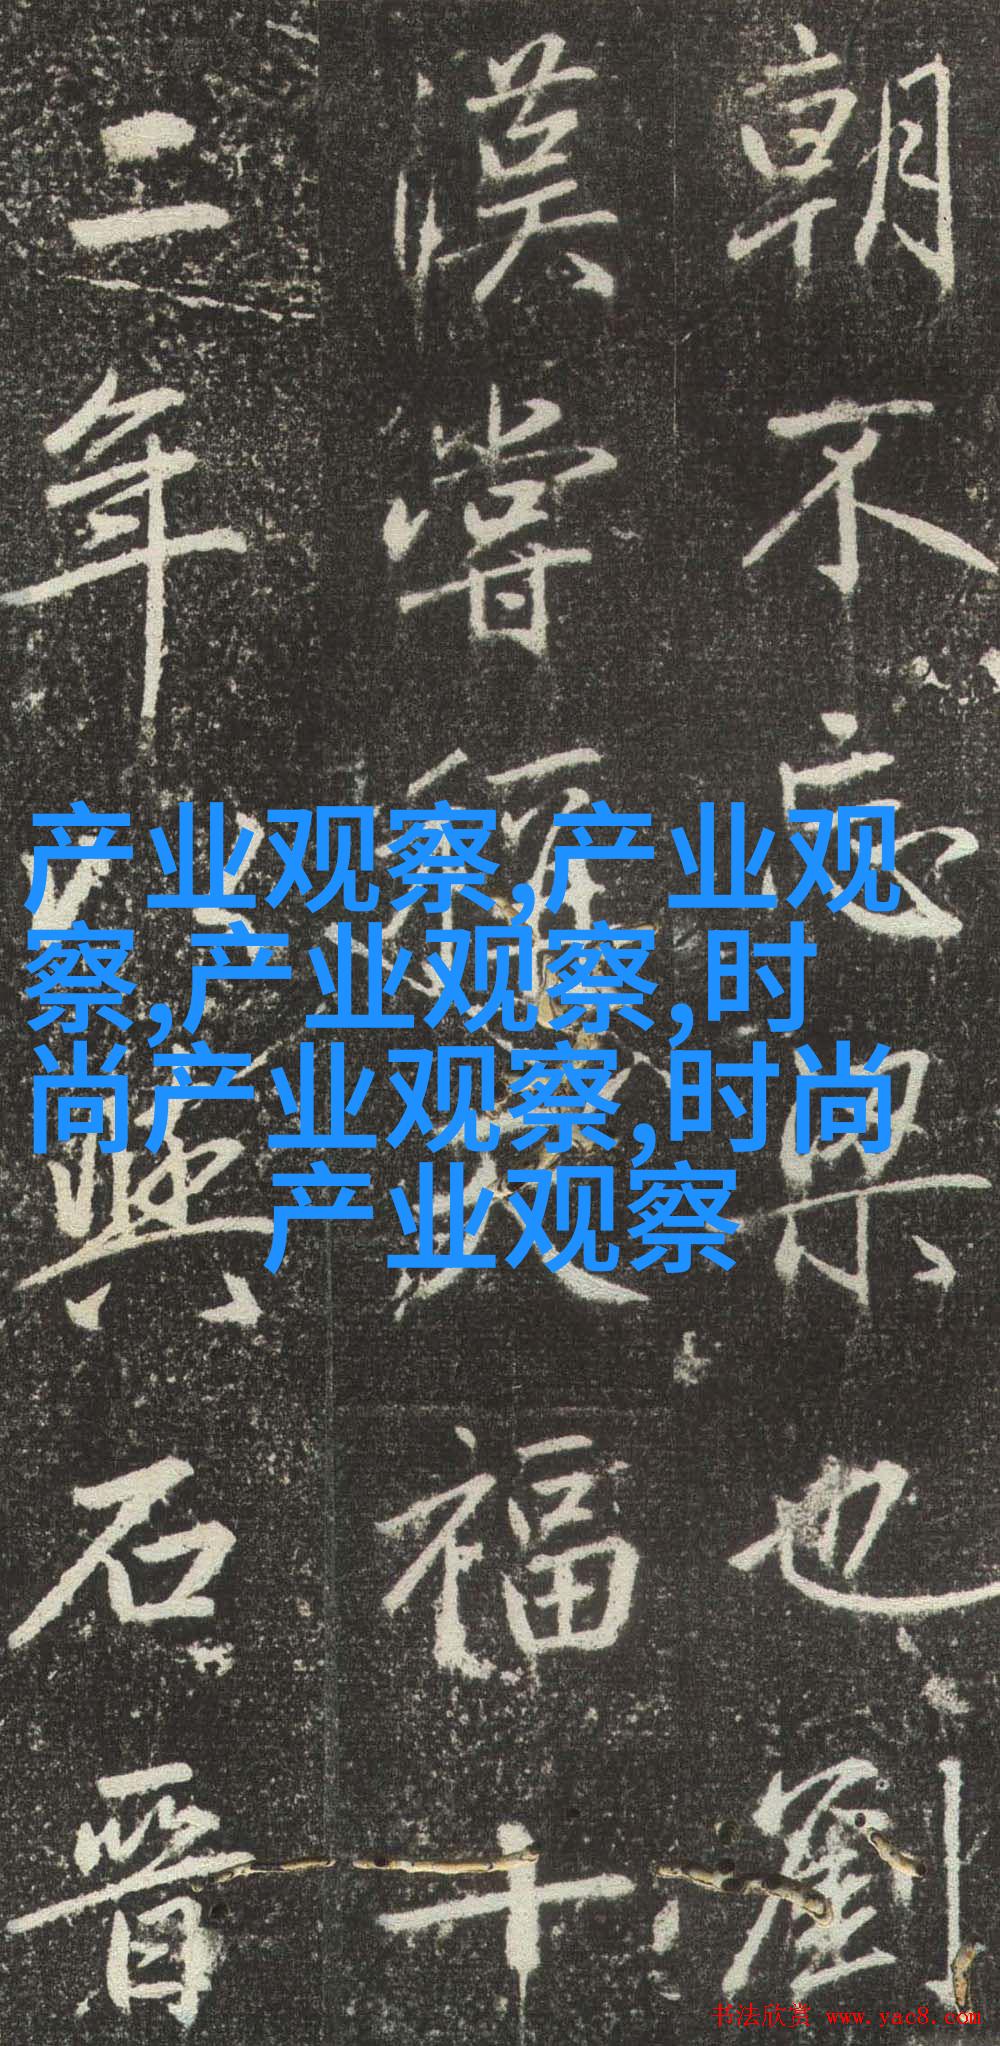 朝不忘果也劉
漢嘗權
福十
二年
與石晉
产业观察,产业观
察,产业观察,时
尚产业观察,时尚
产业观察
书法欣赏 www.yac8.com